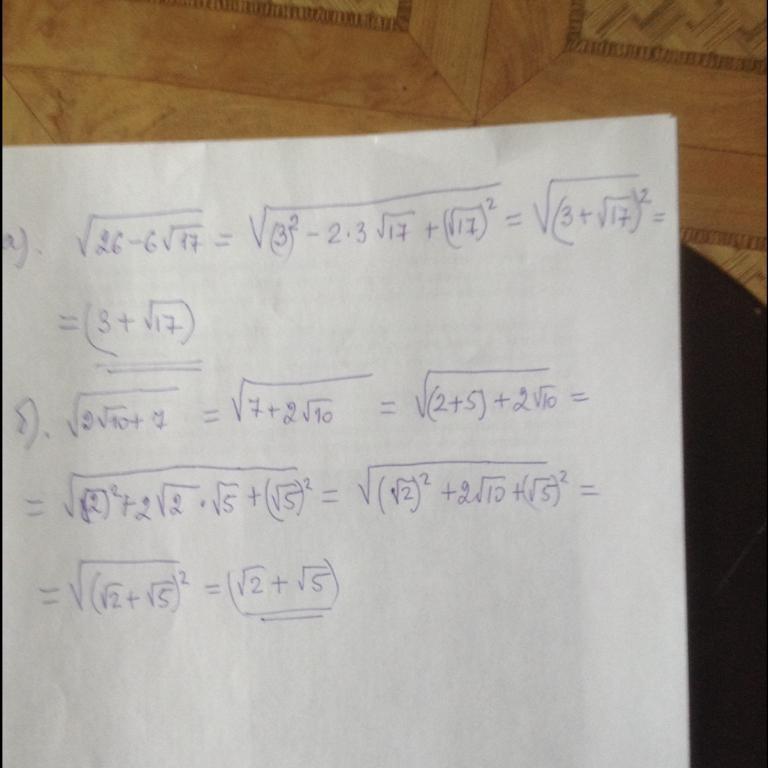 а). √26-6√17 = √(3)²-2·3√17+(√17)² = √(3+√17)² =
= (3+√17)
б). √2√10+7 = √7+2√10 = √(2+5)+2√10 =
= √(√2)²+2√2·√5+(√5)² = √(√2)²+2√10+(√5)² =
= √(√2+√5)² = (√2+√5)